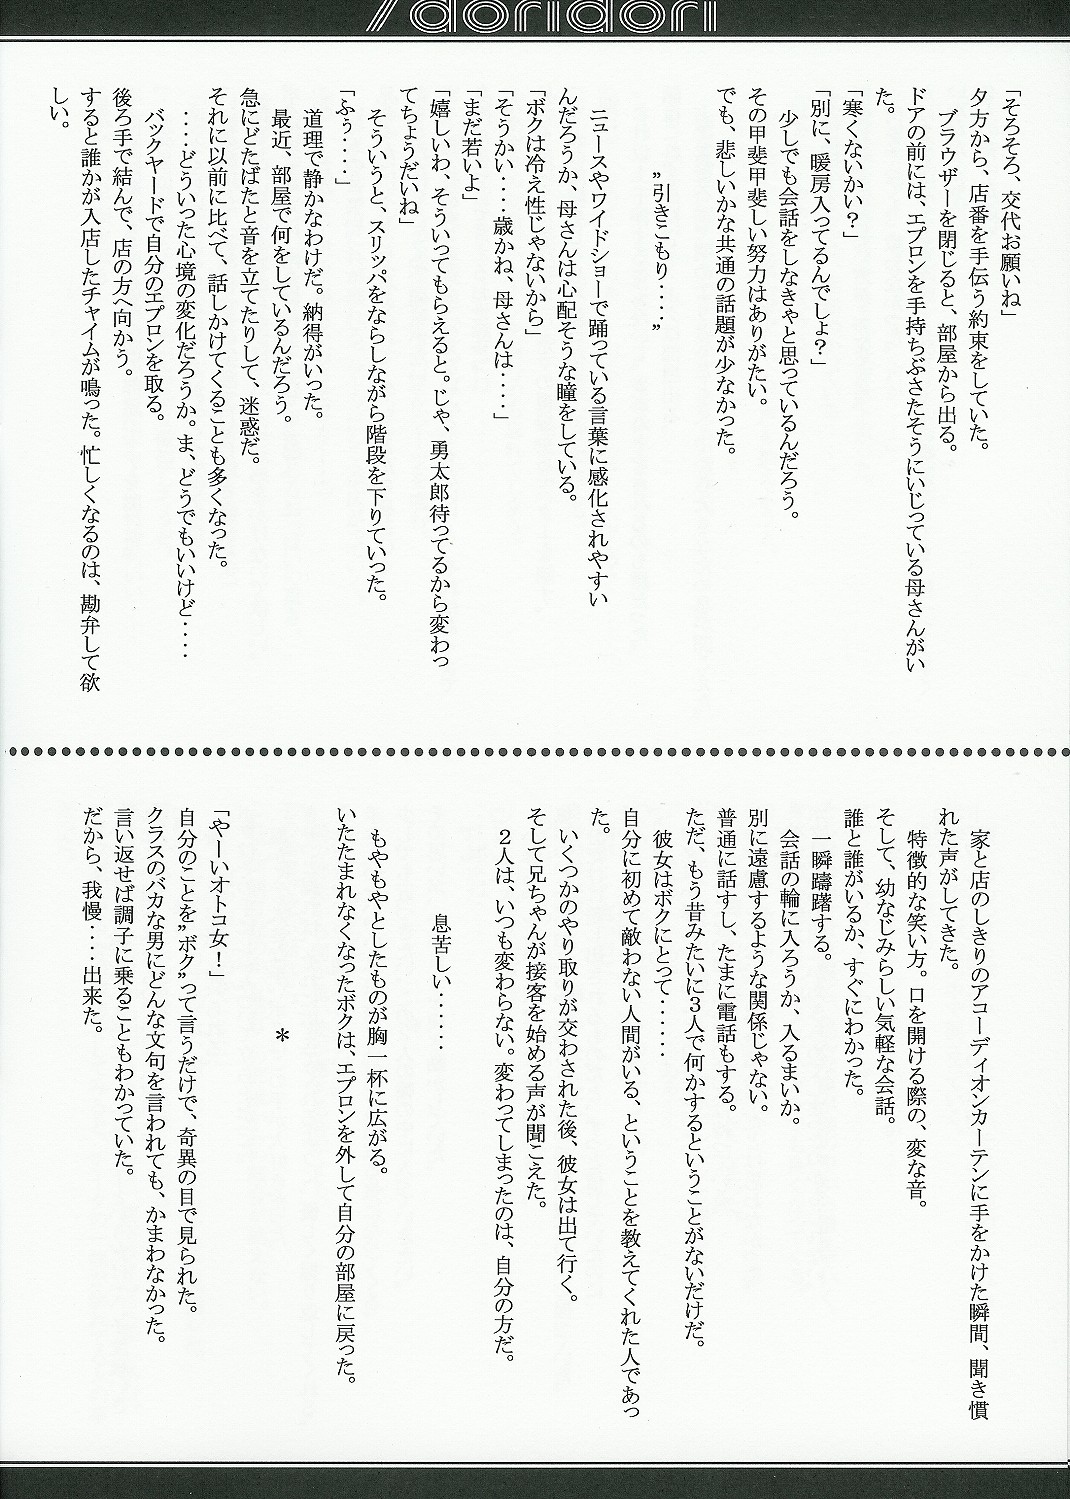 7doridori
「そろそろ、交代お願いね」
夕方から、店番を手伝う約束をしていた。
　ブラウザーを閉じると、部屋から出る。
ドアの前には、エプロンを手持ちぶさたそうにいじっている母さんがい
た。
「寒くないかい？」
「別に、暖房入ってるんでしょ？」
　少しでも会話をしなきゃと思っているんだろう。
その甲斐甲斐しい努力はありがたい。
でも、悲しいかな共通の話題が少なかった。
”引きこもり・・・・”
　ニュースやワイドショーで踊っている言葉に感化されやすい
んだろうか、母さんは心配そうな瞳をしている。
「ボクは冷え性じゃないから」
「そうかい・・・・歳かね、母さんは・・・・」
「まだ若いよ」
「嬉しいわ、そういってもらえると。じゃ、勇太郎待ってるから変わっ
てちょうだいね」
　そういうと、スリッパをならしながら階段を下りていった。
「ふぅ・・・・」
　道理で静かなわけだ。納得がいった。
　最近、部屋で何をしているんだろう。
急にどたばたと音を立てたりして、迷惑だ。
それに以前に比べて、話しかけてくることも多くなった。
　・・・・どういった心境の変化だろうか。ま、どうでもいいけど・・・・
　バックヤードで自分のエプロンを取る。
後ろ手で結んで、店の方へ向かう。
すると誰かが入店したチャイムが鳴った。忙しくなるのは、勘弁して欲
しい。
　家と店のしきりのアコーディオンカーテンに手をかけた瞬間、聞き慣
れた声がしてきた。
　特徴的な笑い方。口を開ける際の、変な音。
そして、幼なじみらしい気軽な会話。
誰と誰がいるか、すぐにわかった。
　一瞬躊躇する。
　会話の輪に入ろうか、入るまいか。
別に遠慮するような関係じゃない。
普通に話すし、たまに電話もする。
ただ、もう昔みたいに３人で何かするということがないだけだ。
　彼女はボクにとって・・・・・
自分に初めて敵わない人間がいる、ということを教えてくれた人であっ
た。
　いくつかのやり取りが交わされた後、彼女は出て行く。
そして兄ちゃんが接客を始める声が聞こえた。
　２人は、いつも変わらない。変わってしまったのは、自分の方だ。
息苦しい・・・・・・
　もやもやとしたものが胸一杯に広がる。
いたたまれなくなったボクは、エプロンを外して自分の部屋に戻った。
＊
「やーいオトコ女！」
自分のことを”ボク”って言うだけで、奇異の目で見られた。
クラスのバカな男にどんな文句を言われても、かまわなかった。
言い返せば調子に乗ることもわかっていた。
だから、我慢・・・・出来た。